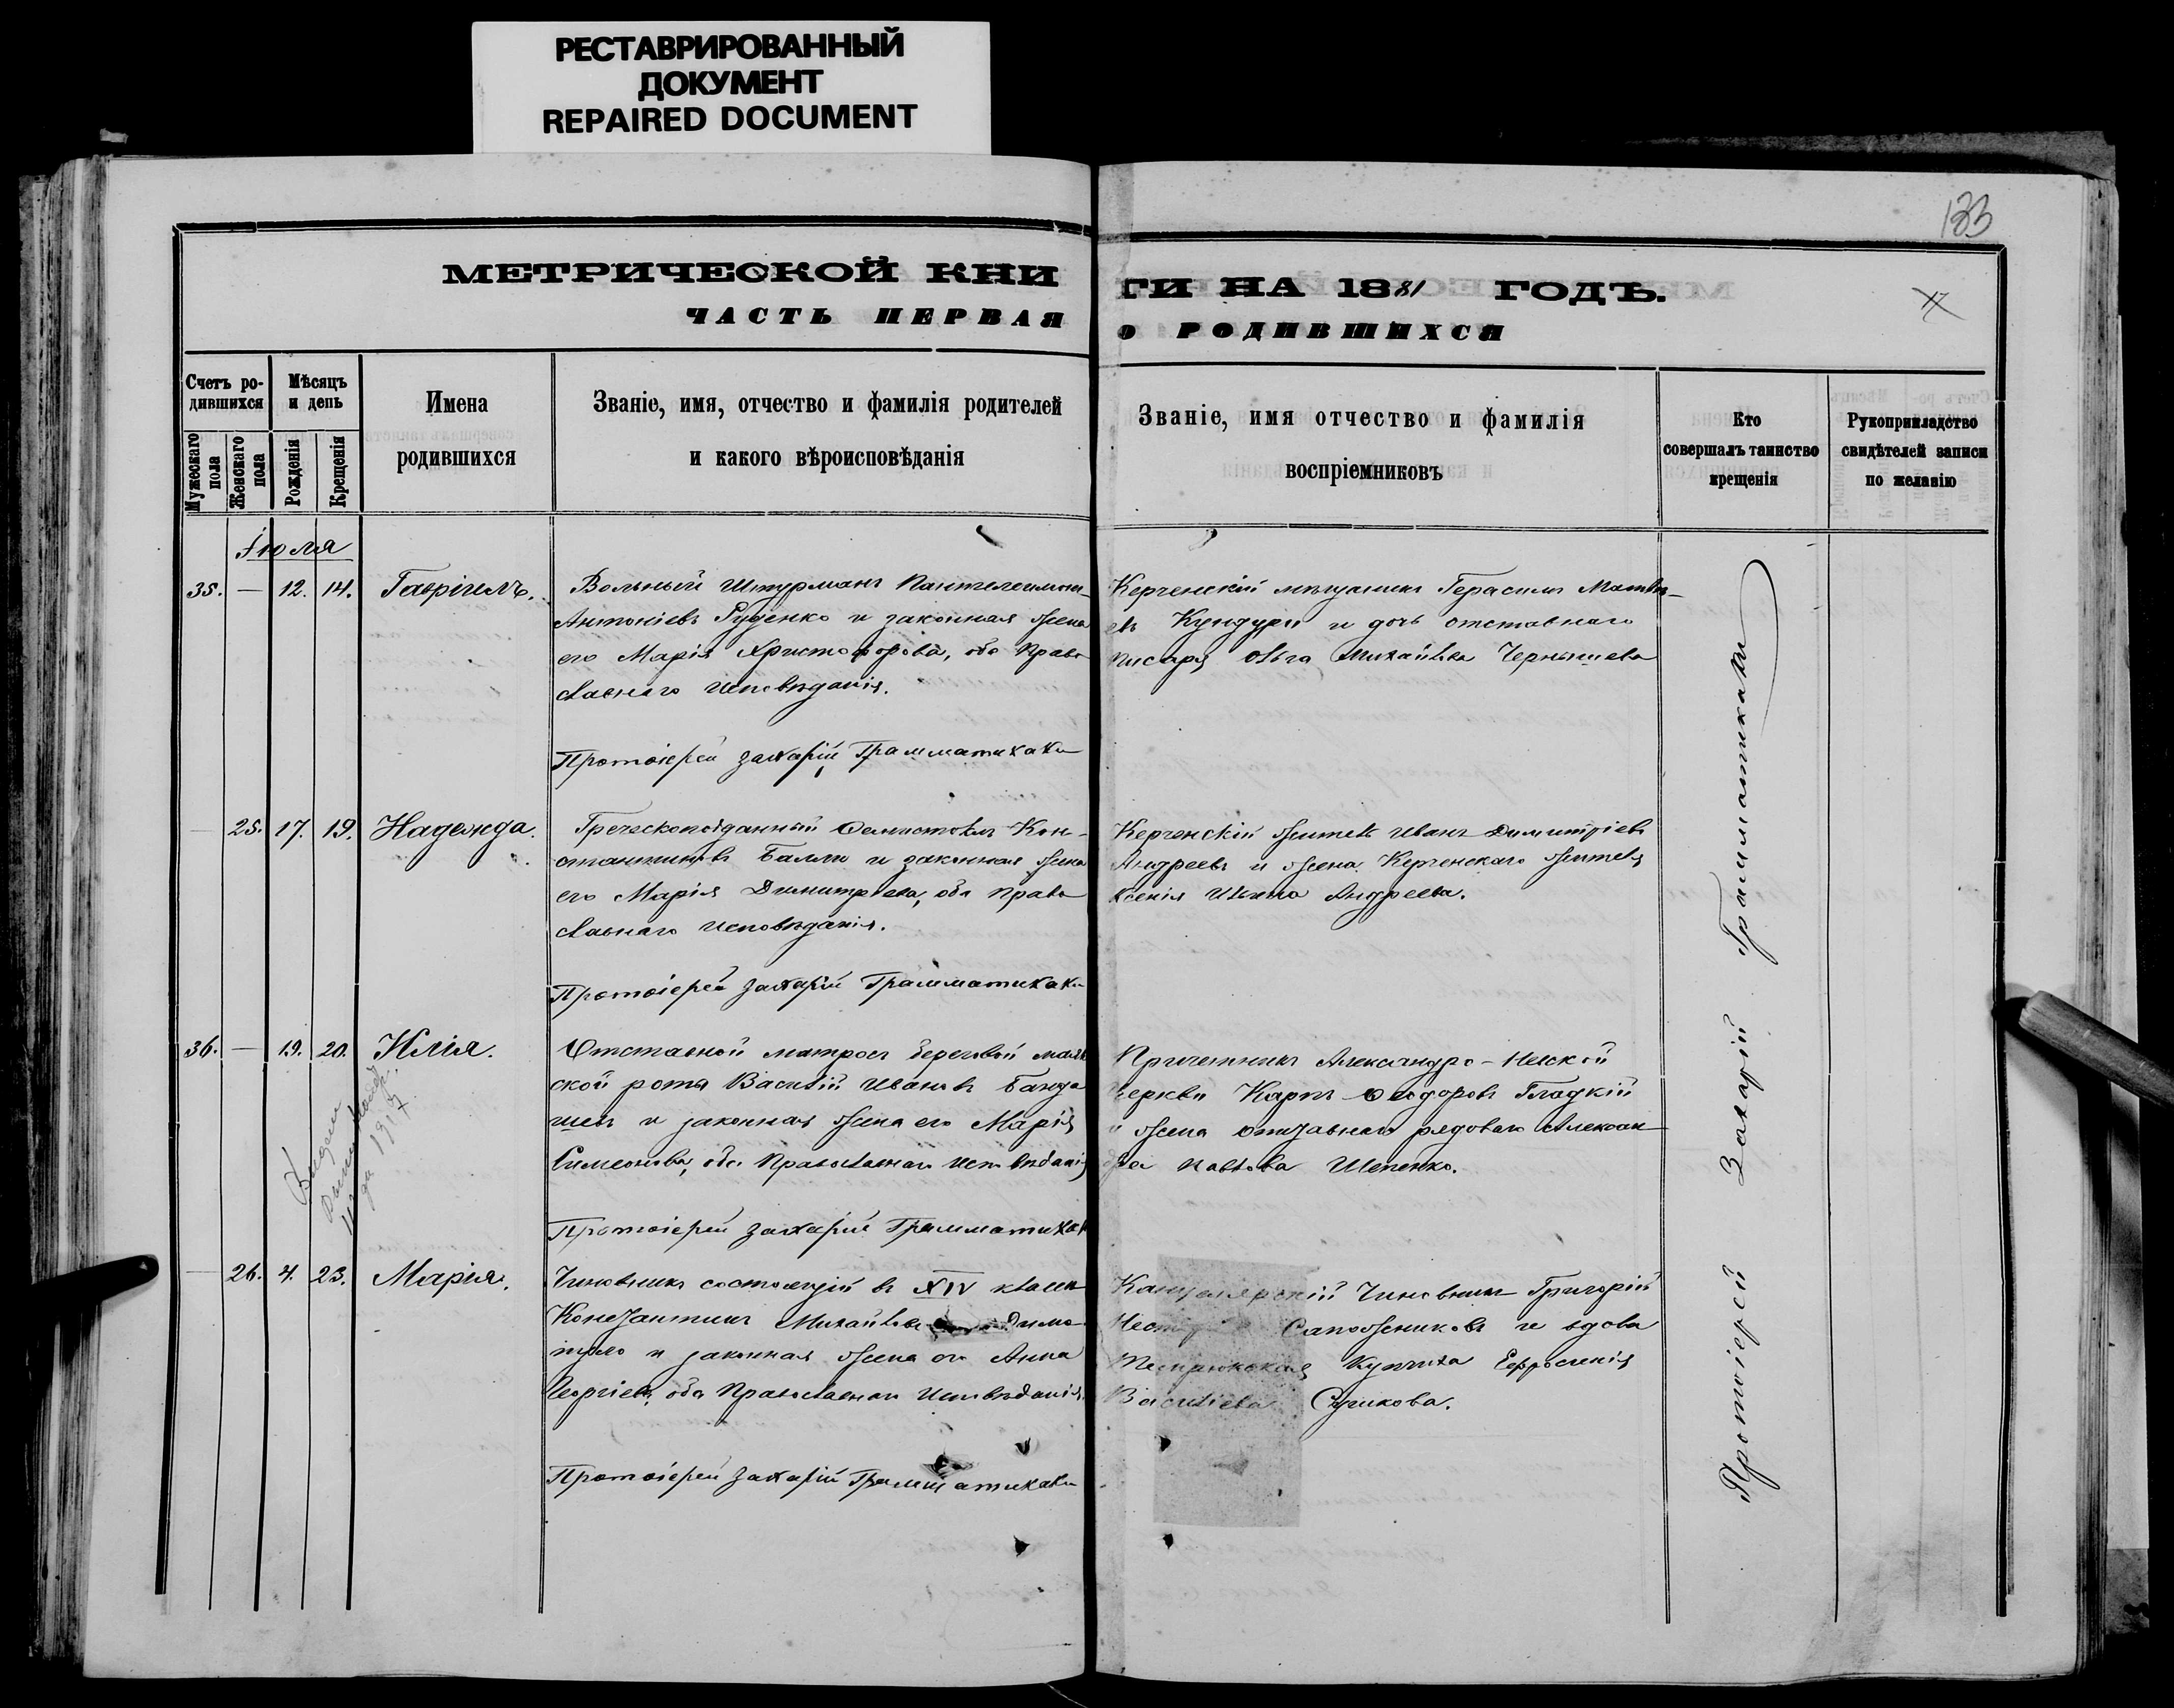 РЕСТАВРИРОВАННЫЙ
ДОКУМЕНТ
REPAIRED DOCUMENT
133
МЕТРИЧЕСКОЙ КНИ
ГИ НА 1881 ГОДЪ.
ЧАСТЬ ПЕРВАЯ
О РОДИВШИХСЯ
Счетъ ро-
дившихся
Мужескаго пола
Женскаго пола
Мѣсяцъ
и день
Рожденія
Крещенія
Имена
родившихся
Званіе, имя, отчество и фамилія родителей
и какого вѣроисповѣданія
Званіе, имя отчество и фамилія
воспріемниковъ
Кто
совершалъ таинство
крещенія
Рукоприкладство
свидѣтелей записи
по желанію
Іюля
35. — 12. 14. Гавріилъ.
Вольный Штурманъ Пантелеимонъ
Антоніевъ Руденко и законная жена
его Марія Христофорова, оба Право
славнаго исповѣданія.
Протоіерей Захарій Грамматикаки
Керченскій мѣщанинъ Герасимъ Матвѣ-
евъ Кундури и дочь отставнаго
писаря Ольга Михайлова Чернышева
— 25. 17. 19. Надежда.
Греческоподданный Ѳемистокль Кон-
стантиновъ Балли и законная жена
его Марія Димитріева, оба Право
славнаго исповѣданія.
Протоіерей Захарій Грамматикаки
Керченскій житель Иванъ Димитріевъ
Андреевъ и жена Керченскаго жителя
Ксенія Ильина Андреева.
36. — 19. 20. Илія.
Отставной матросъ береговой маяч
ской роты Василій Ивановъ Банда
шевъ и законная жена его Марія
Симеонова, оба Православнаго исповѣданія
Протоіерей Захарій Грамматикаки
Причетникъ Александро-Невской
Церкви Карпъ Ѳеодоровъ Гладкій
и жена отставнаго рядоваго Алексан
дра Павлова Шепенко.
— 26. 4. 23. Марія.
Чиновникъ состоящій въ XIV классѣ
Константинъ Михайловъ
и законная жена его Анна
Георгіева, оба Православнаго исповѣданія.
Протоіерей Захарій Грамматикаки
Канцелярскій Чиновникъ Григорій
Сапожниковъ и вдова
Темрюкская Купчиха Евфросинія
Василіева Сушкова.
Протоіерей Захарій Грамматикаки